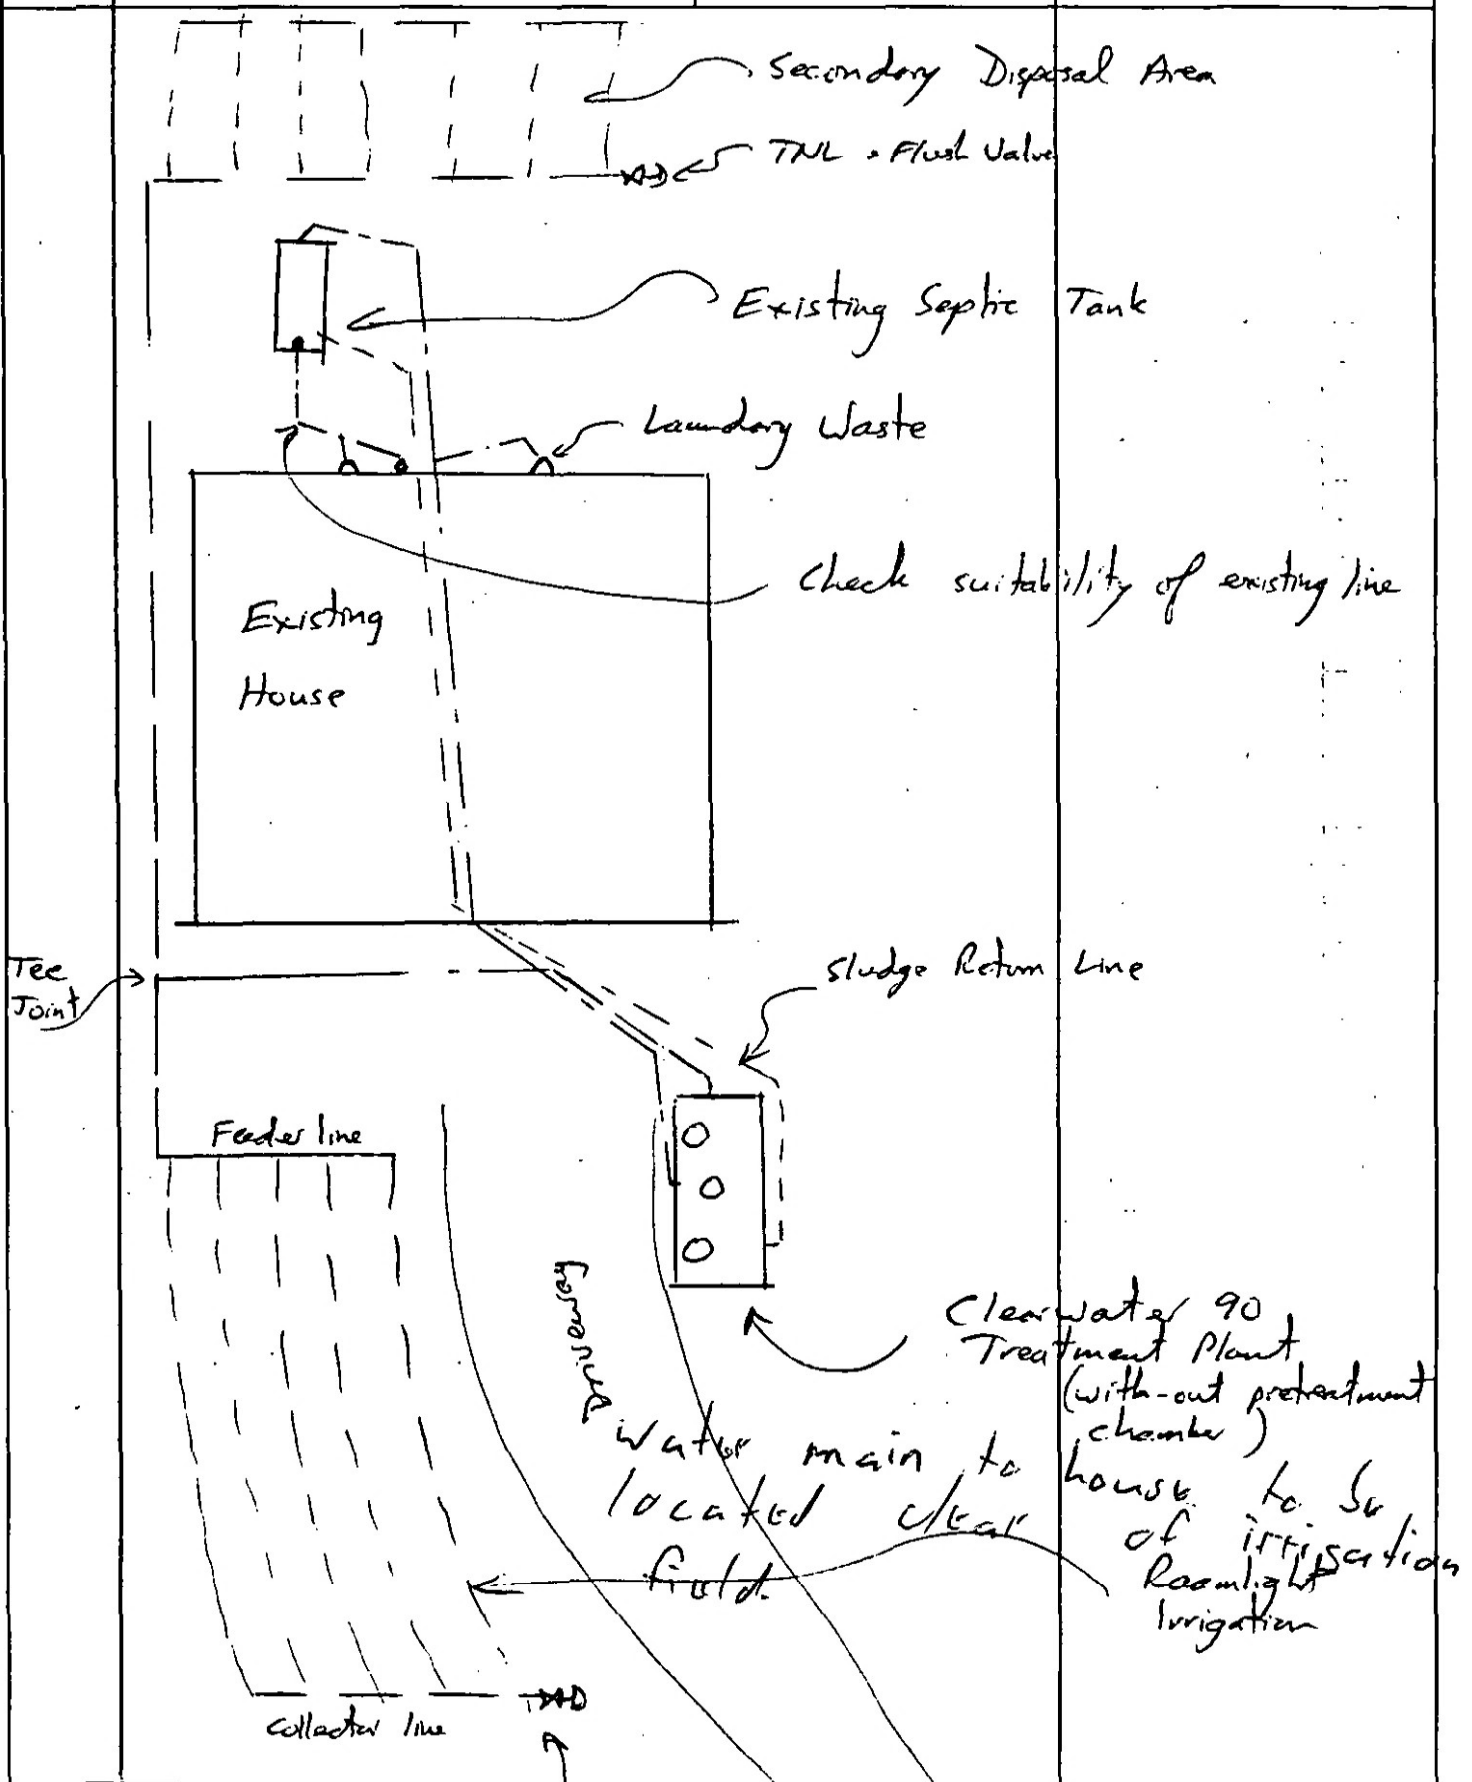 Secondary Disposal Area
Flush Valve
Existing Septic Tank
Laundary Waste
Check suitability of existing line
Existing
House
Tee
Joint
Sludge Return Line
Feeder line
Driveway
Clearwater 90
Treatment Plant
(with-out pretreatment
chamber)
water main to house to be
located clear of irrigation
field.
Irrigation
Collector line